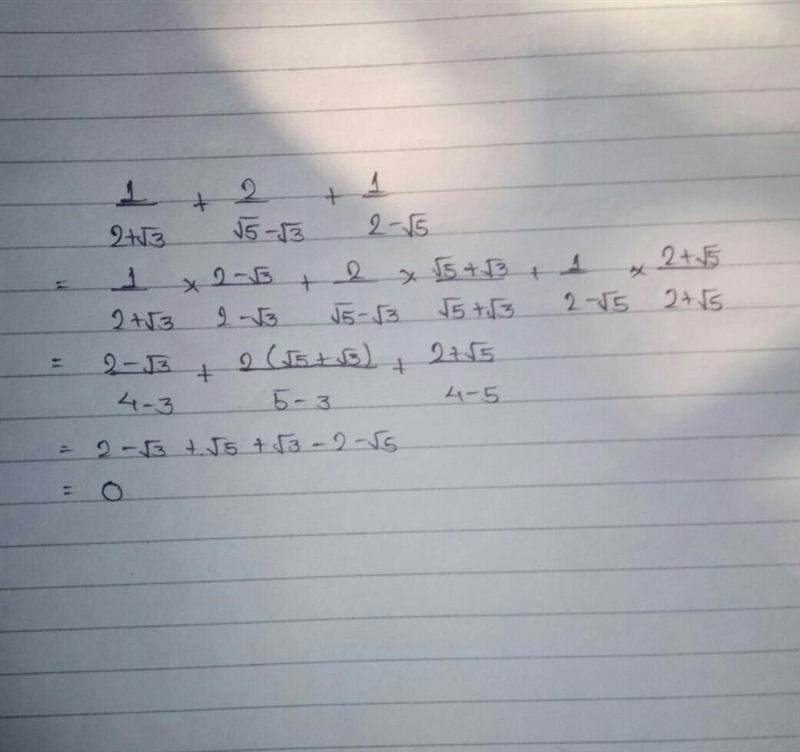 1/(2+√3) + 2/(√5-√3) + 1/(2-√5)
= 1/(2+√3) × (2-√3)/(2-√3) + 2/(√5-√3) × (√5+√3)/(√5+√3) + 1/(2-√5) × (2+√5)/(2+√5)
= (2-√3)/(4-3) + 2(√5+√3)/(5-3) + (2+√5)/(4-5)
= 2-√3 +√5 +√3 -2-√5
= 0